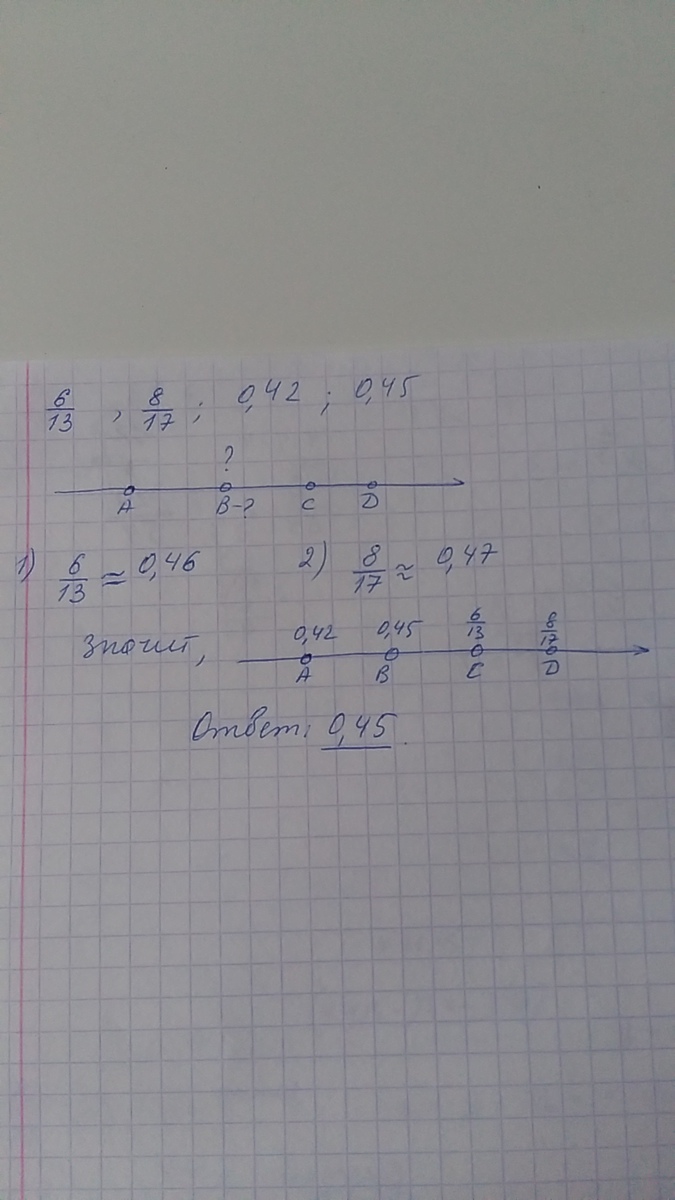 6/13 , 8/17 ; 0,42 ; 0,45
?
A B-? C D
1) 6/13 ≈ 0,46 2) 8/17 ≈ 0,47
0,42 0,45 6/13 8/17
Значит,
A B C D
Ответ: 0,45.